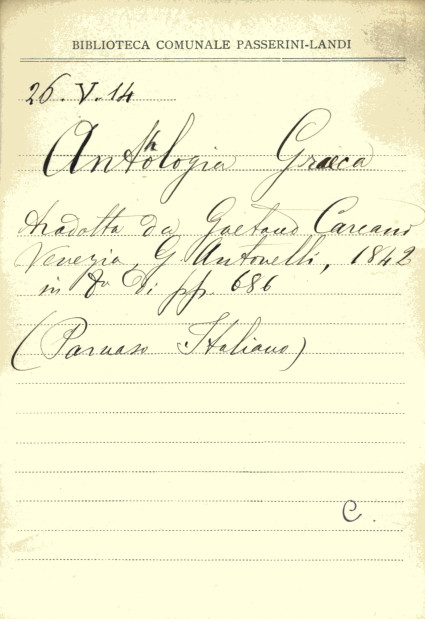 BIBLIOTECA COMUNALE PASSERINI-LANDI
26.V.14
Anthologia Graeca
tradotta da Gaetano Carcani
Venezia, G Antonelli, 1842
in 8º di pp. 686
(Parnaso Italiano)
C.